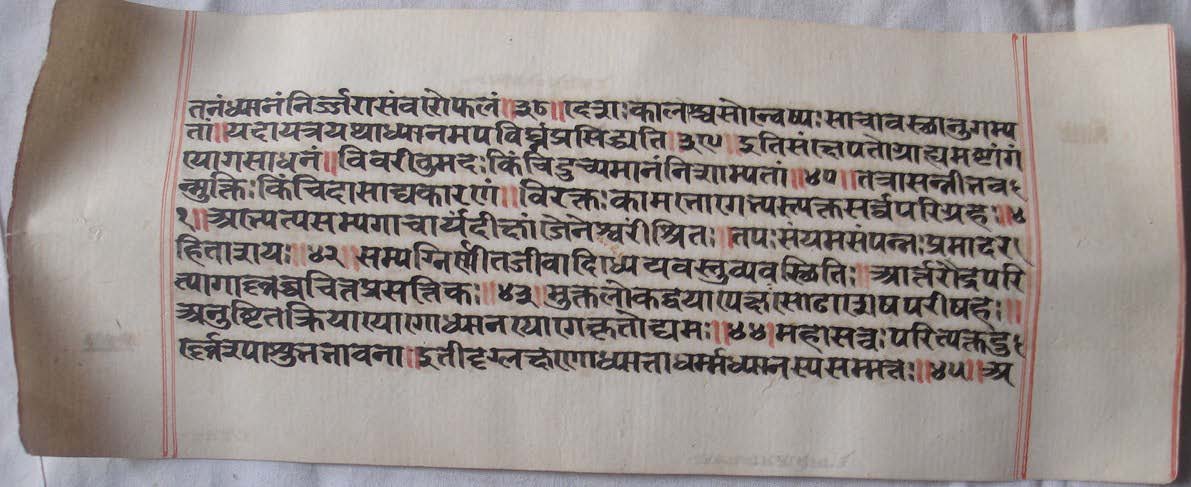 तनंध्यानंनिर्ज्जरासंवरोफलं॥३८॥देशःकालश्चसोन्वेष्यःसाचावस्थानुगम्य
तां॥यदायत्रयथाध्यानमपविघ्नंप्रसिद्ध्यति॥३९॥इतिसंक्षेपतोग्राह्यमष्टांगं
त्यागसाधनं॥विवरीतुमदःकिंचिदुच्यमानंनिशाम्यतां॥४०॥तत्रासन्नीभवे
न्मुक्तिःकिंचिदासाद्यकारणं॥विरक्तःकामभोगेभ्यस्त्यक्तसर्व्वपरिग्रहः॥४
१॥अभ्येत्यसम्यगाचार्यंदीक्षांजैनेश्वरींश्रितः॥तपःसंयमसंपन्नःप्रमादर
हिताशयः॥४२॥सम्यग्निर्णीतजीवादिध्येयवस्तुव्यवस्थितिः॥आर्त्तरौद्रपरि
त्यागाल्लब्धचित्तप्रसत्तिकः॥४३॥मुक्तलोकद्वयापेक्षःसोढाशेषपरीषहः॥
अनुष्टितक्रियायोगोध्यानयोगेकृतोद्यमः॥४४॥महासत्वःपरित्यक्तदु
र्लेश्याशुभभावना॥इतीदृग्लक्षणोध्याताधर्म्मध्यानस्यसम्मतः॥४५॥अ